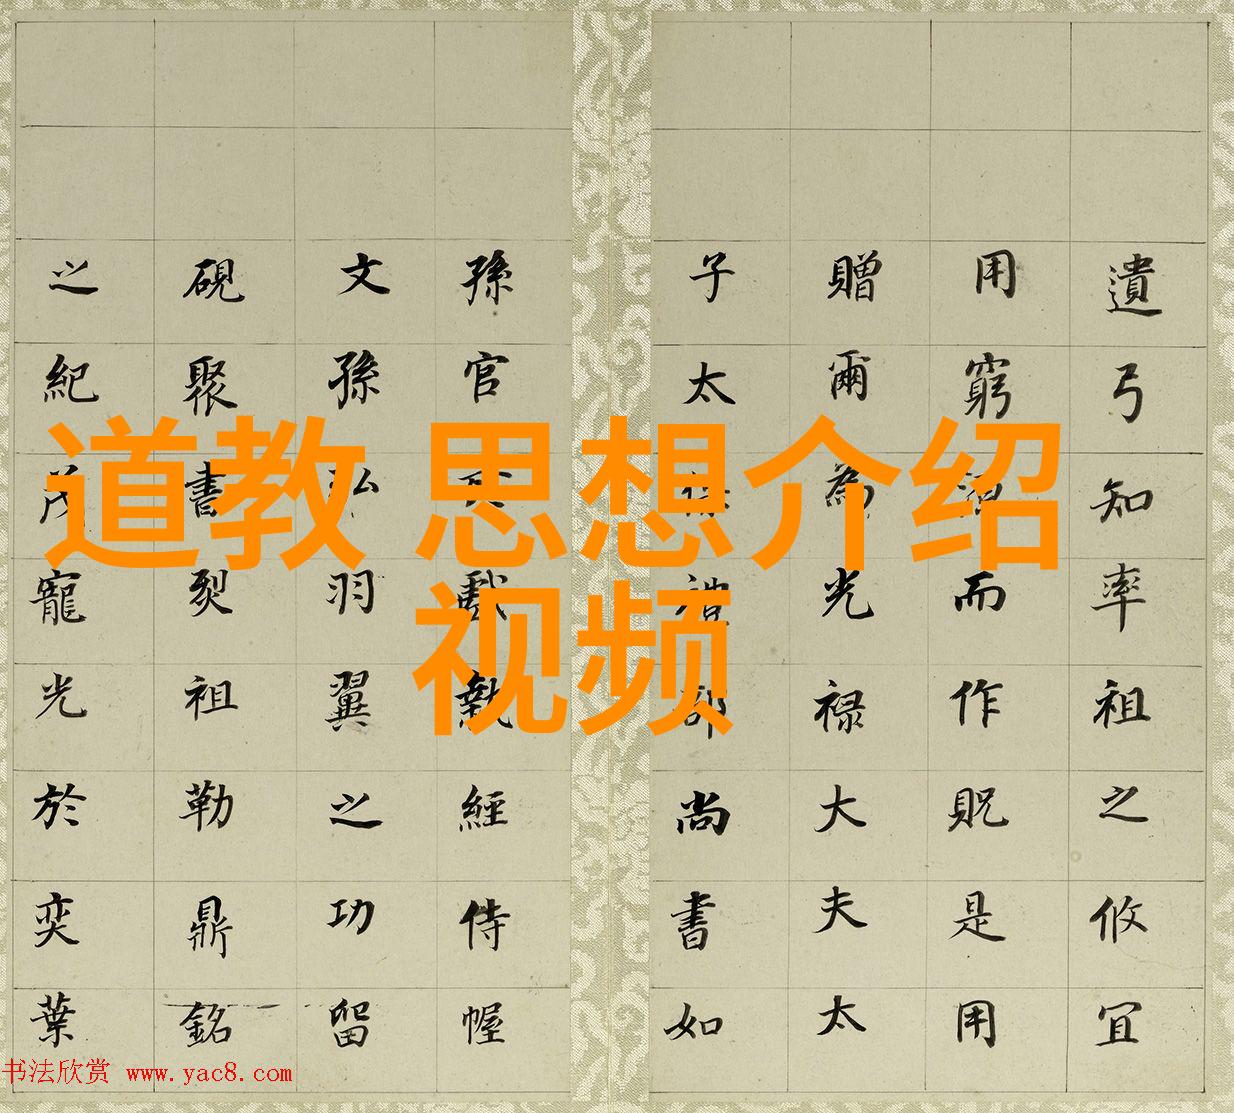 道教 思想介绍
视频
遺弓知率祖之攸宜
用窮而作貺是用
贈爾為光禄大夫太
子太保禮部尚書如
孫官執經侍幄
文孫弘羽翼之功留
硯聚書烈祖勒鼎銘
之紀茂寵光於奕葉
书法欣赏 www.yac8.com